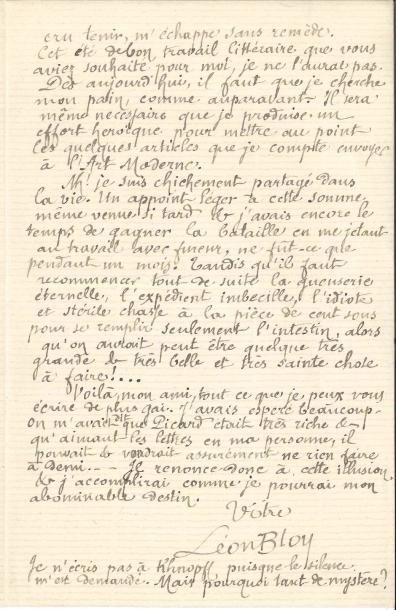 cru tenir, m'échappe sans remède.
Cet été de bon travail littéraire que vous
aviez souhaité pour moi, je ne l'aurai pas.
Dès aujourd'hui, il faut que je cherche
mon pain, comme auparavant. Il sera
même nécessaire que je produise un
effort héroïque pour mettre au point
les quelques articles que je compte envoyer
à l'Art Moderne.
Ah! je suis chichement partagé dans
la vie. Un appoint léger à cette somme
même venue si tard & j'avais encore le
temps de gagner la bataille en me jetant
au travail avec fureur, ne fût-ce que
pendant un mois. Tandis qu'il faut
recommencer tout de suite la gueuserie
éternelle, l'expédient imbécille, l'idiote
et stérile chasse à la pièce de cent sous
pour se remplir seulement l'intestin, alors
qu'on aurait peut être quelque très
grande & très belle et très sainte chose
à faire!...
Voilà, mon ami, tout ce que je peux vous
écrire de plus gai. J'avais espéré beaucoup.
On m'avait dit que Picard était très riche &
qu'aimant les lettres en ma personne, il
pouvait & voudrait assurément ne rien faire
à demi... Je renonce donc à cette illusion
& j'accomplirai comme je pourrai mon
abominable destin.
Votre
Léon Bloy
Je n'écris pas à Khnopff puisque le silence
m'est demandé. Mais pourquoi tant de mystère?